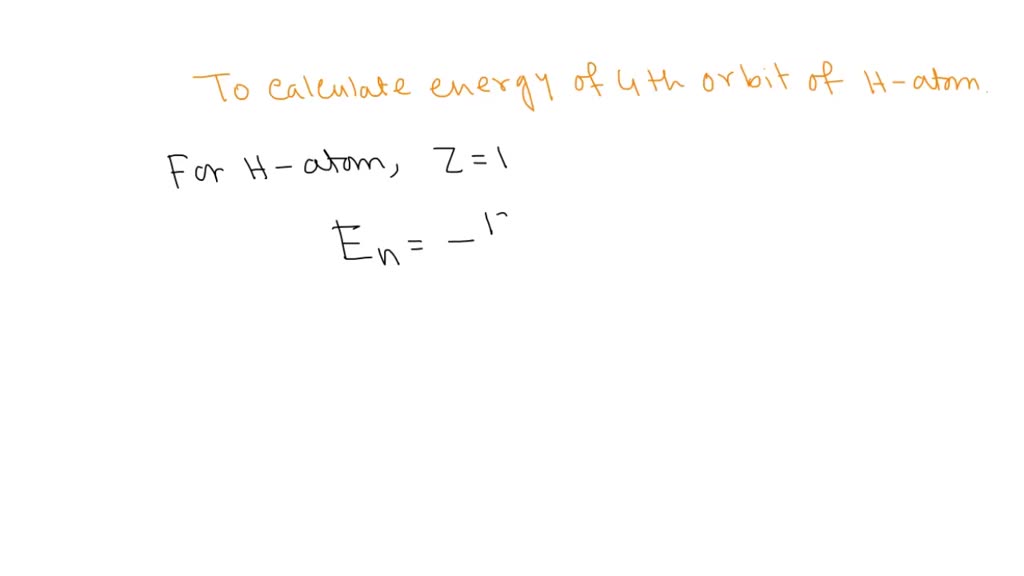 To calculate energy of 4th orbit of H-atom.
For H-atom, Z=1
En = - 1